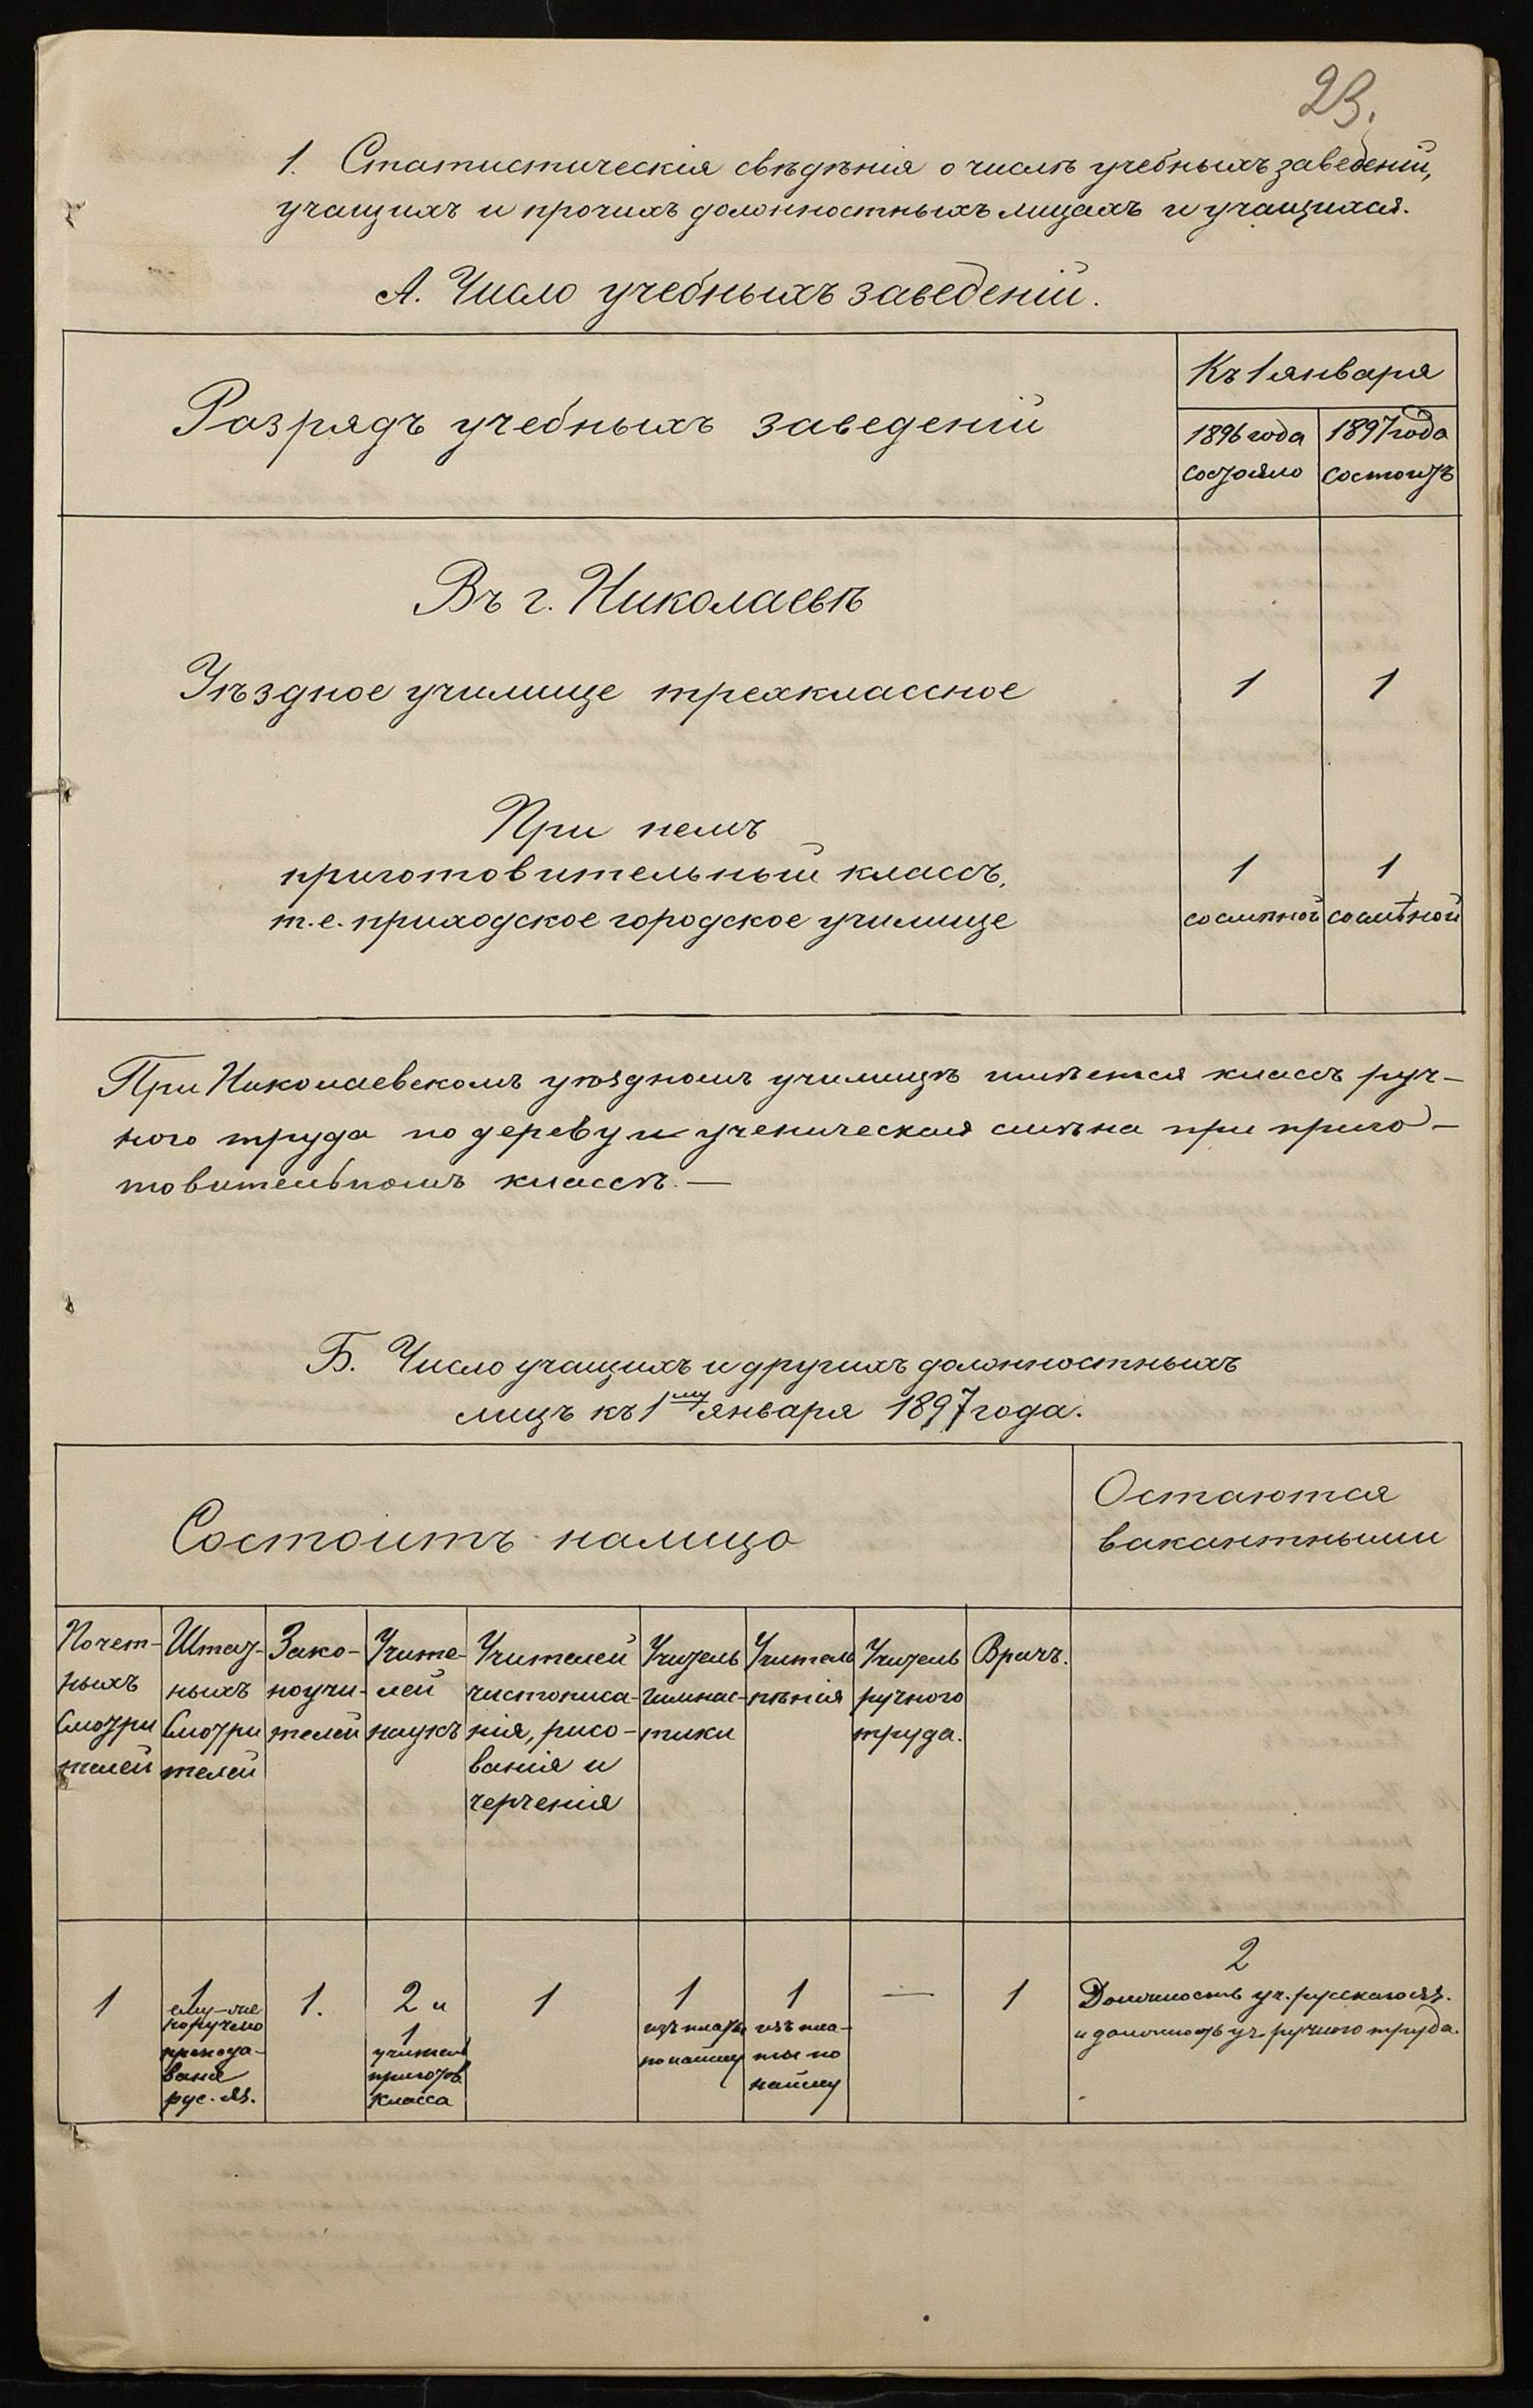 23.
1. Статистическія свѣдѣнія о числѣ учебныхъ заведеній,
учащихъ и прочихъ должностныхъ лицахъ и учащихся.
А. Число учебныхъ заведеній.
Разрядъ учебныхъ заведеній
Къ 1 января
1896 года
состояло
1897 года
состоитъ
Въ г. Николаевѣ
Уѣздное училище трехклассное
1
1
При немъ
приготовительный классъ,
т.е. приходское городское училище
1
со смѣной
1
со смѣной
При Николаевскомъ уѣздномъ училищѣ имѣется классъ руч-
ного труда по дереву и ученическая смѣна при приго-
товительномъ классѣ.—
Б. Число учащихъ и другихъ должностныхъ
лицъ къ 1му января 1897 года.
Состоитъ налицо
Остаются
вакантными
Почет-
ныхъ
Смотри
телей
Штат-
ныхъ
Смотри
телей
Зако-
ноучи-
телей
Учите-
лей
наукъ
Учителей
чистописа-
нія, рисо-
ванія и
черченія
Учитель
гимнас-
тики
Учитель
пѣнія
Учитель
ручного
труда.
Врачъ.
1
1
ему-же
поручено
препода-
ваніе
рус. яз.
1.
2 и
1
учитель
приготов.
класса
1
1
изъ платы
по найму
1
изъ пла-
ты по
найму
—
1
2
Должность уч. русскаго яз.
и должность уч. ручного труда.